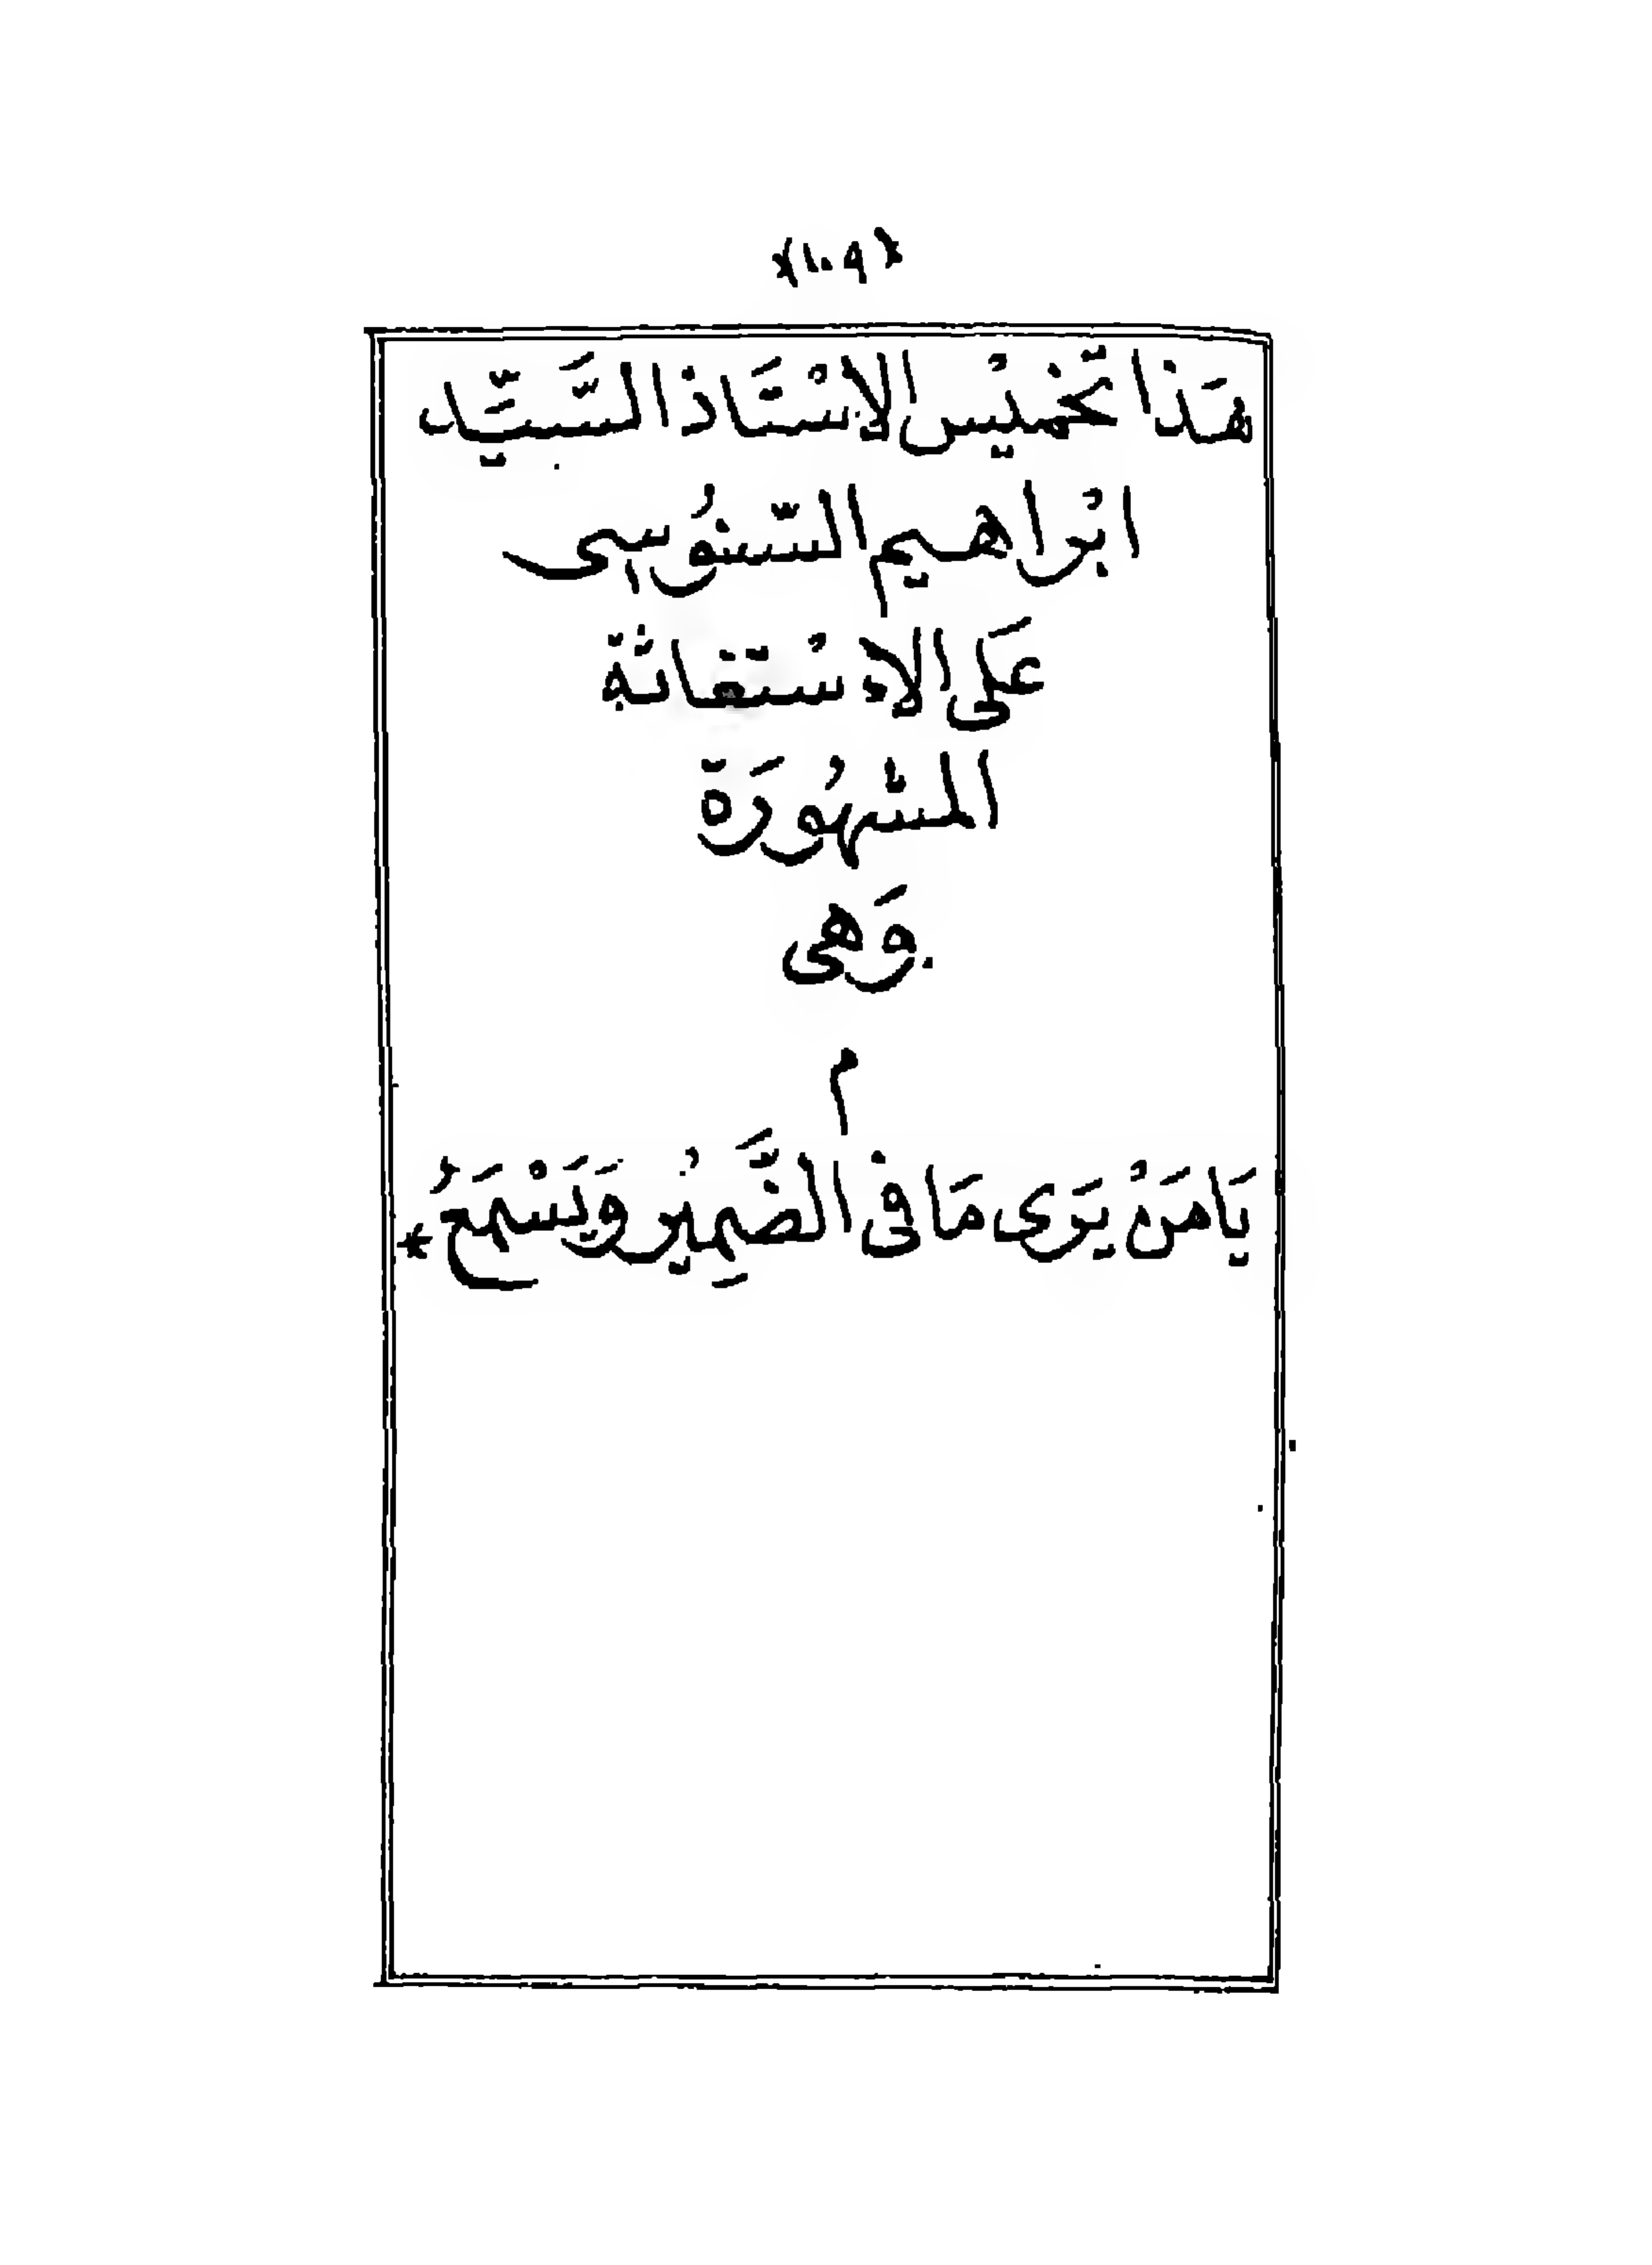 ﴿١٠٩﴾
هَذَا تَخْمِيْس الاِسْتَّاذ السَّيِّد
ابْراهيم السّنُوسى
عَلى الاِسْتغاثة
المشْهُورَة
وَهى
م
يَا مَنْ يَرَى مَا فى الضَّمِيْر وَيَسْمَعُ *